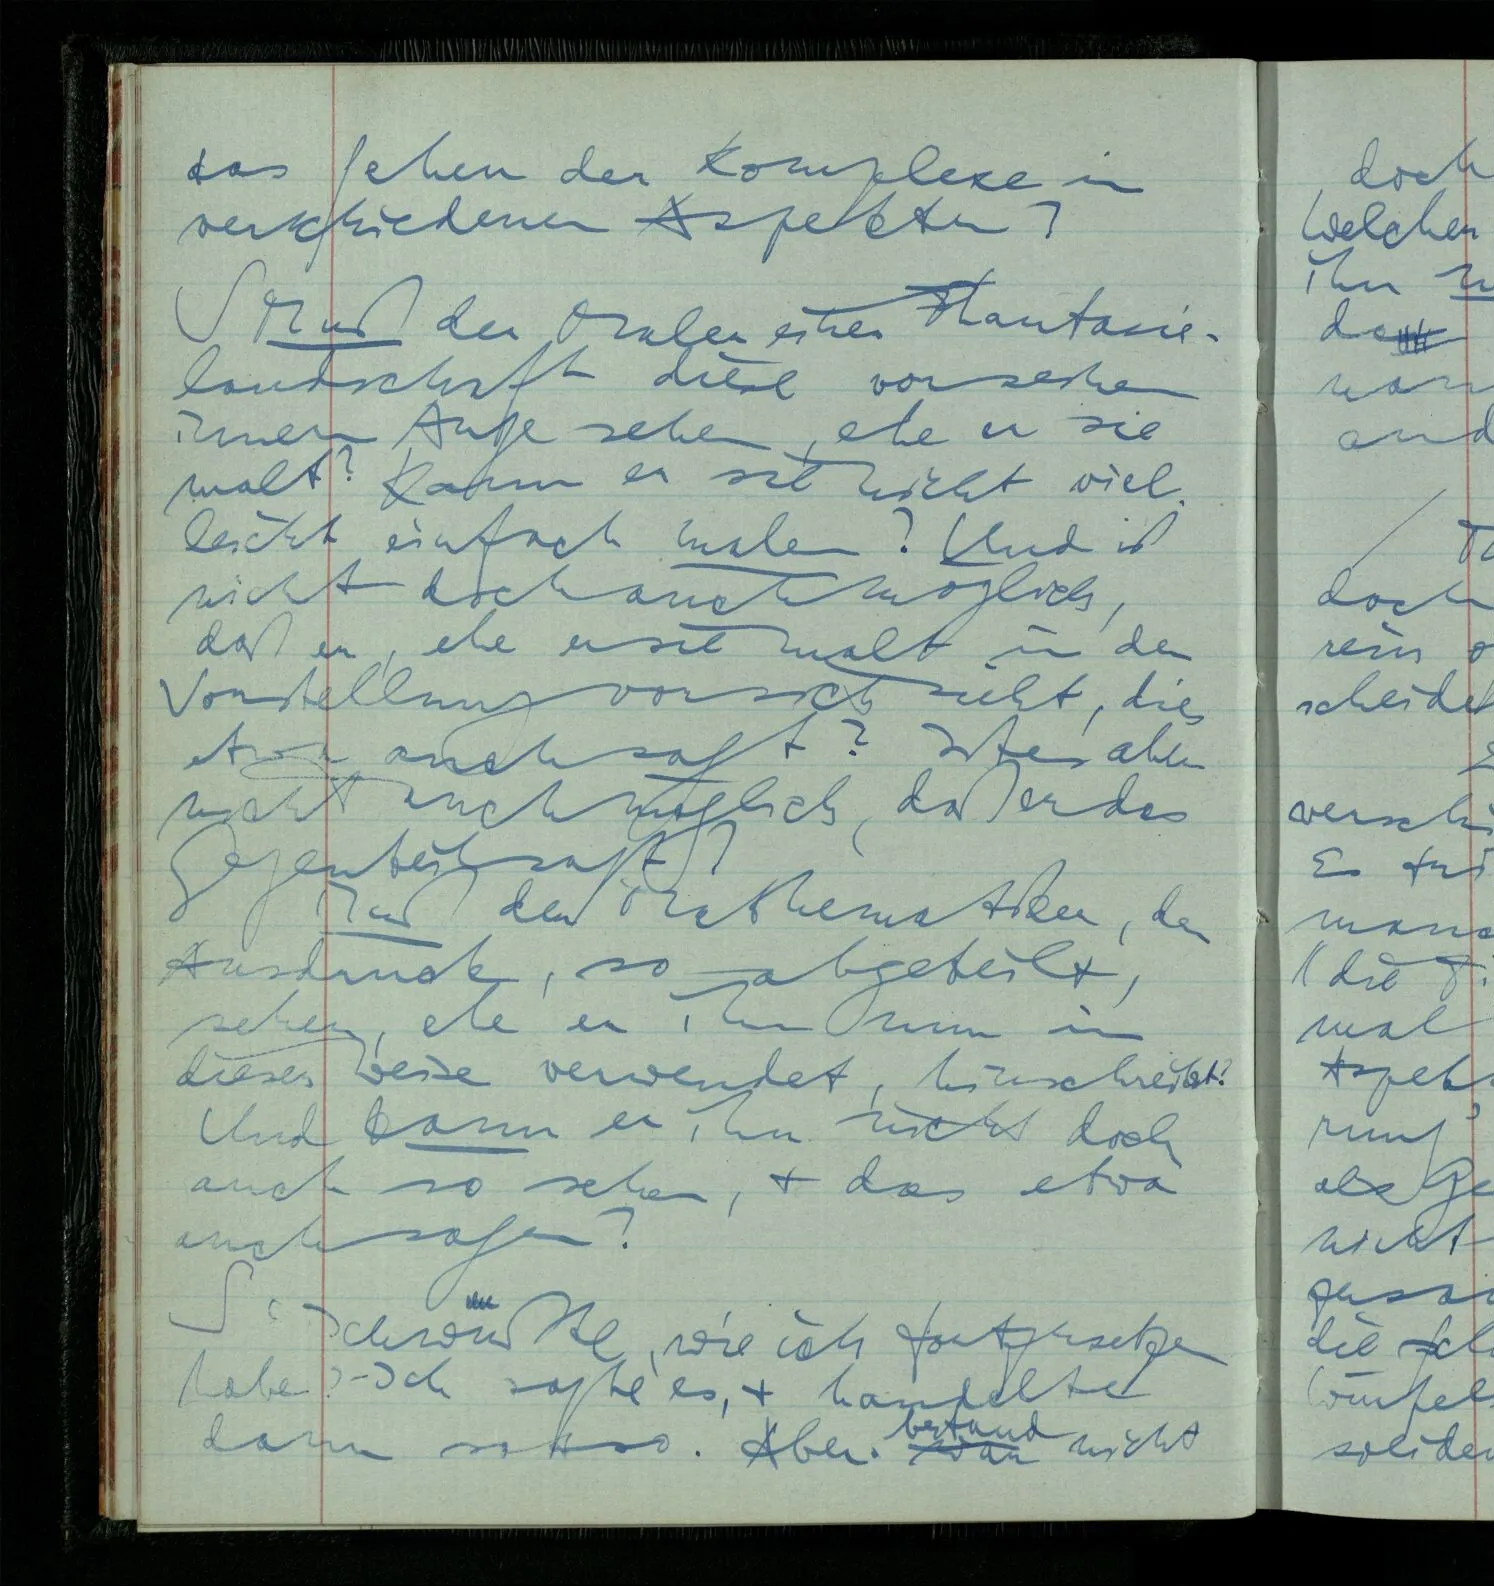 das sehen der Komplexe in
verschiedenen Aspekten?
S Muß der Maler einer Phantasie-
landschaft diese vor seinem
innern Auge sehen, ehe er sie
malt? Kann er sie nicht viel-
leicht einfach malen? Und ist
nicht doch auch möglich,
daß er, ehe er sie malt in der
Vorstellung vor sich sieht, dies
etwa auch sagt? Ist es aber
nicht auch möglich, daß er das
Gegenteil sagt?
Muß der Mathematiker, den
Ausdruck, so abgeteilt,
sehen, ehe er ihn nun in
dieser Weise verwendet, hinschreibt?
Und kann er ihn nicht doch
auch so sehen, + das etwa
auch sagen?
S Ich wußte, wie ich fortzusetzen
habe? – Ich sagte es, + handelte
dann so + so. Aber bestand nicht
doch
Welchen
ihn
wan
and
doch
rein
scheidet
verschi
Es
"die
mal
Aspek
rung'
als Ge
nicht
die
Würfels
soliden